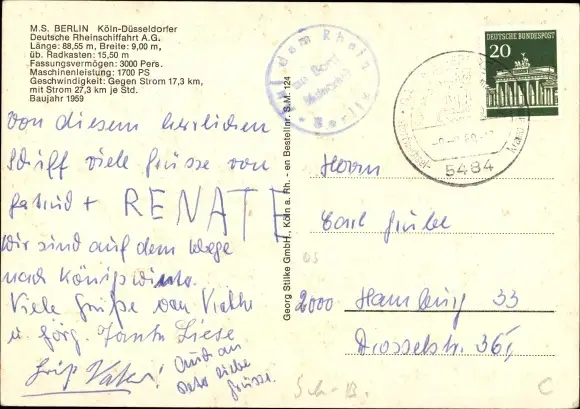 M.S. BERLIN Köln-Düsseldorfer
Deutsche Rheinschiffahrt A.G.
Länge: 88,55 m, Breite: 9,00 m,
üb. Radkasten: 15,50 m
Fassungsvermögen: 3000 Pers.
Maschinenleistung: 1700 PS
Geschwindigkeit: Gegen Strom 17,3 km,
mit Strom 27,3 km je Std.
Baujahr 1959
Von diesem herrlichen
Schiff viele Grüsse von
+ RENATE
Wir sind auf dem Wege
nach Königswinter.
Viele Grüße von
u. Jörg. Tante Liese
Vater!
Auch an
liebe
Grüsse.
Georg Stilke GmbH., Köln a. Rh. - en Bestellnr. S.M. 124
Auf dem Rhein
an Bord
Berlin
DEUTSCHE BUNDESPOST
20
5484
Herrn
Carl
2000 Hamburg 33
Drosselstr. 36
C